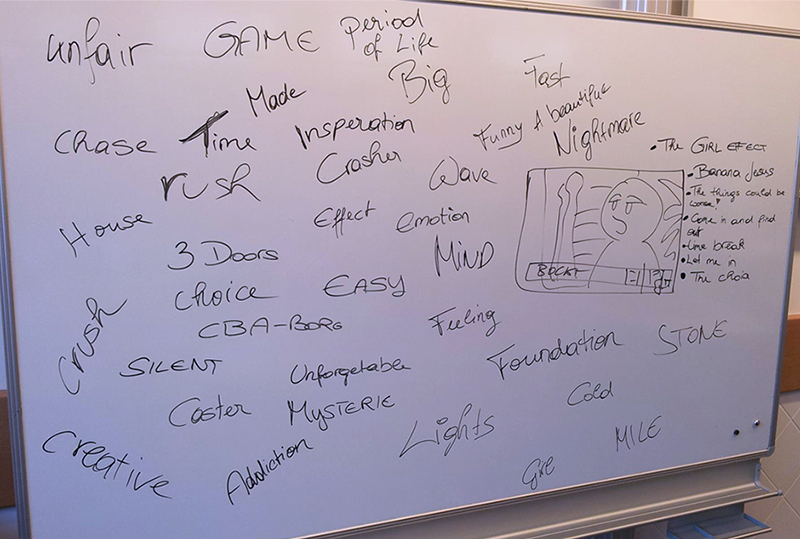 unfair
GAME
Period
of Life
Big
Fast
Made
Chase
Time
Insperation
Funny & beautiful
Nightmare
rush
Crasher
Wave
• The GIRL EFFECT
• Banana Jesus
• The things could be
worse!
• Come in and find
out
• Time break
• Let me in
• The choia
House
Effect
emotion
3 Doors
MIND
choice
EASY
CBA-BORG
Feeling
Crush
SILENT
Unforgetable
Foundation
STONE
Coster
MYSTERIE
Cold
Creative
Addiction
Lights
MILE